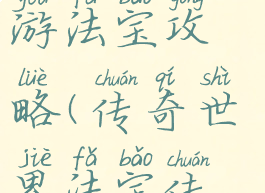 yóu fǎ bǎo gōng
游法宝攻
lüè chuán qí shì
略(传奇世
jiè fǎ bǎo chuán
界法宝传